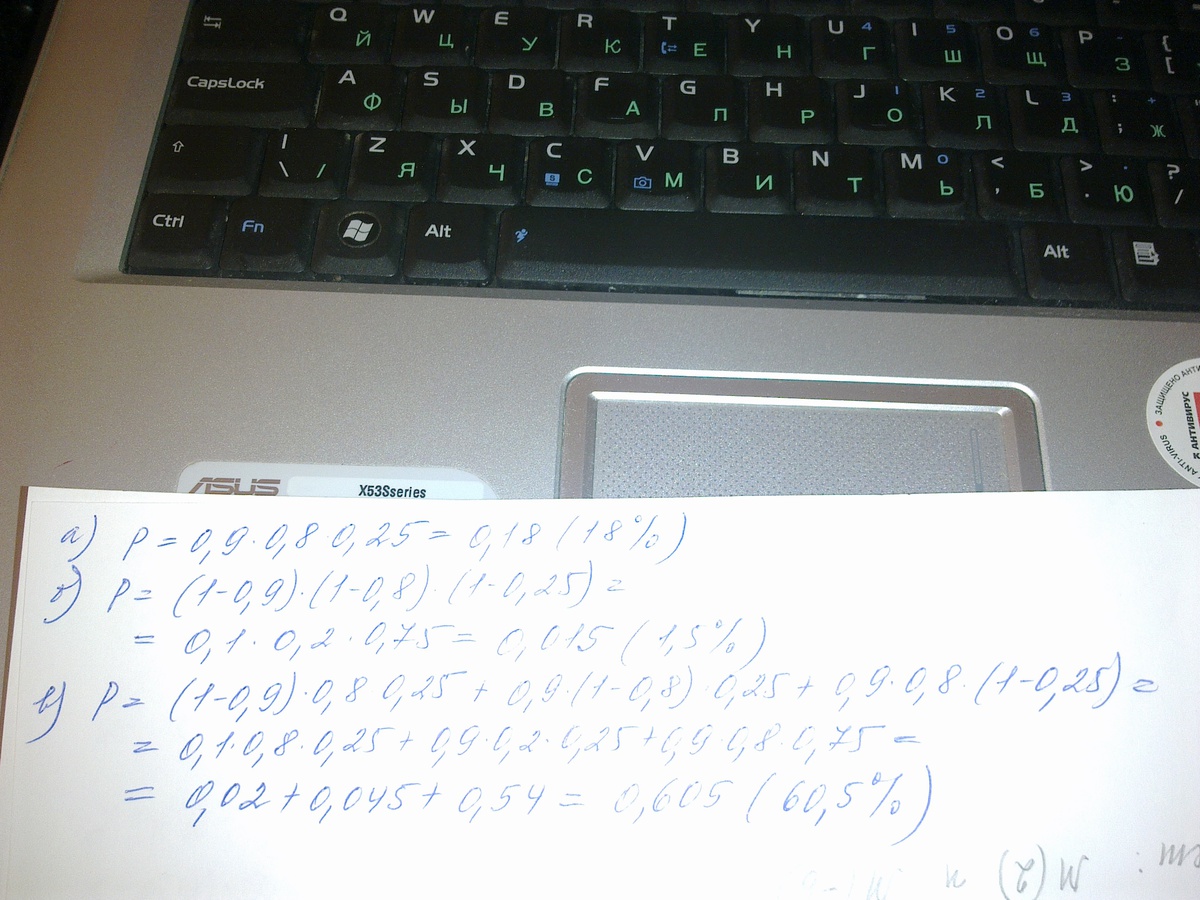 Q Й W Ц E У R К T Е Y Н U 4 Г I 5 Ш O 6 Щ P - З { [
CapsLock A Ф S Ы D В F А G П H Р J 1 О K 2 Л L 3 Д : ; + Ж
| \ / Z Я X Ч C S С V М B И N Т M 0 Ь < , Б > . . Ю ? /
Ctrl Fn Alt Alt
ЗАЩИЩЕНО АНТИ
АНТИВИРУС
ANTI-VIRUS
ASUS X53Sseries
а) P = 0,9·0,8·0,25 = 0,18 (18%)
б) P = (1-0,9)·(1-0,8)·(1-0,25) =
= 0,1·0,2·0,75 = 0,015 (1,5%)
в) P = (1-0,9)·0,8·0,25 + 0,9·(1-0,8)·0,25 + 0,9·0,8·(1-0,25) =
= 0,1·0,8·0,25 + 0,9·0,2·0,25 + 0,9·0,8·0,75 =
= 0,02 + 0,045 + 0,54 = 0,605 (60,5%)